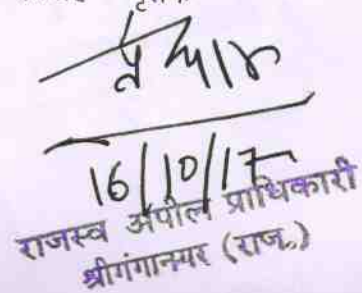 16/10/17
राजस्व अपील प्राधिकारी
श्रीगंगानगर (राज.)